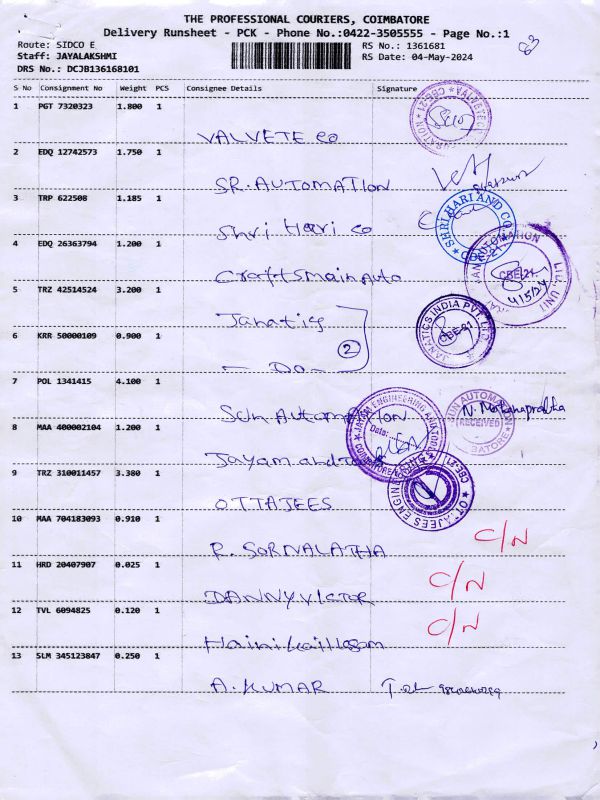 THE PROFESSIONAL COURIERS, COIMBATORE
Delivery Runsheet - PCK - Phone No.:0422-3505555 - Page No.:1
Route: SIDCO E
RS No.: 1361681
Staff: JAYALAKSHMI
RS Date: 04-May-2024
DRS No.: DCJB136168101
S No Consignment No Weight PCS Consignee Details Signature
1 PGT 7320323 1.800 1
VALVETE CO
2 EDQ 12742573 1.750 1
SR. AUTOMATION
3 TRP 622508 1.185 1
Shri Hari co
SHRI HARI AND CO
4 EDQ 26363794 1.200 1
CraftsmainAuto
CBE-21
4/5/24
5 TRZ 42514524 3.200 1
Janatig
JANATICS INDIA PVT. LTD.
CBE-21
6 KRR 50000109 0.900 1
2
- Do -
7 POL 1341415 4.100 1
Sun Automation
SUN AUTOMATION
RECEIVED
N. Mathanaprabha
8 MAA 400002104 1.200 1
JAYAM ENGINEERING
Date:
Jayam and
9 TRZ 310011457 3.380 1
OTTAJEES
OTTAJEES ENGINE
CBE-21
10 MAA 704183093 0.910 1
R. SORNALATHA
C/N
11 HRD 20407907 0.025 1
DANNY VICTOR
C/N
12 TVL 6094825 0.120 1
C/N
13 SLM 345123847 0.250 1
A. KUMAR